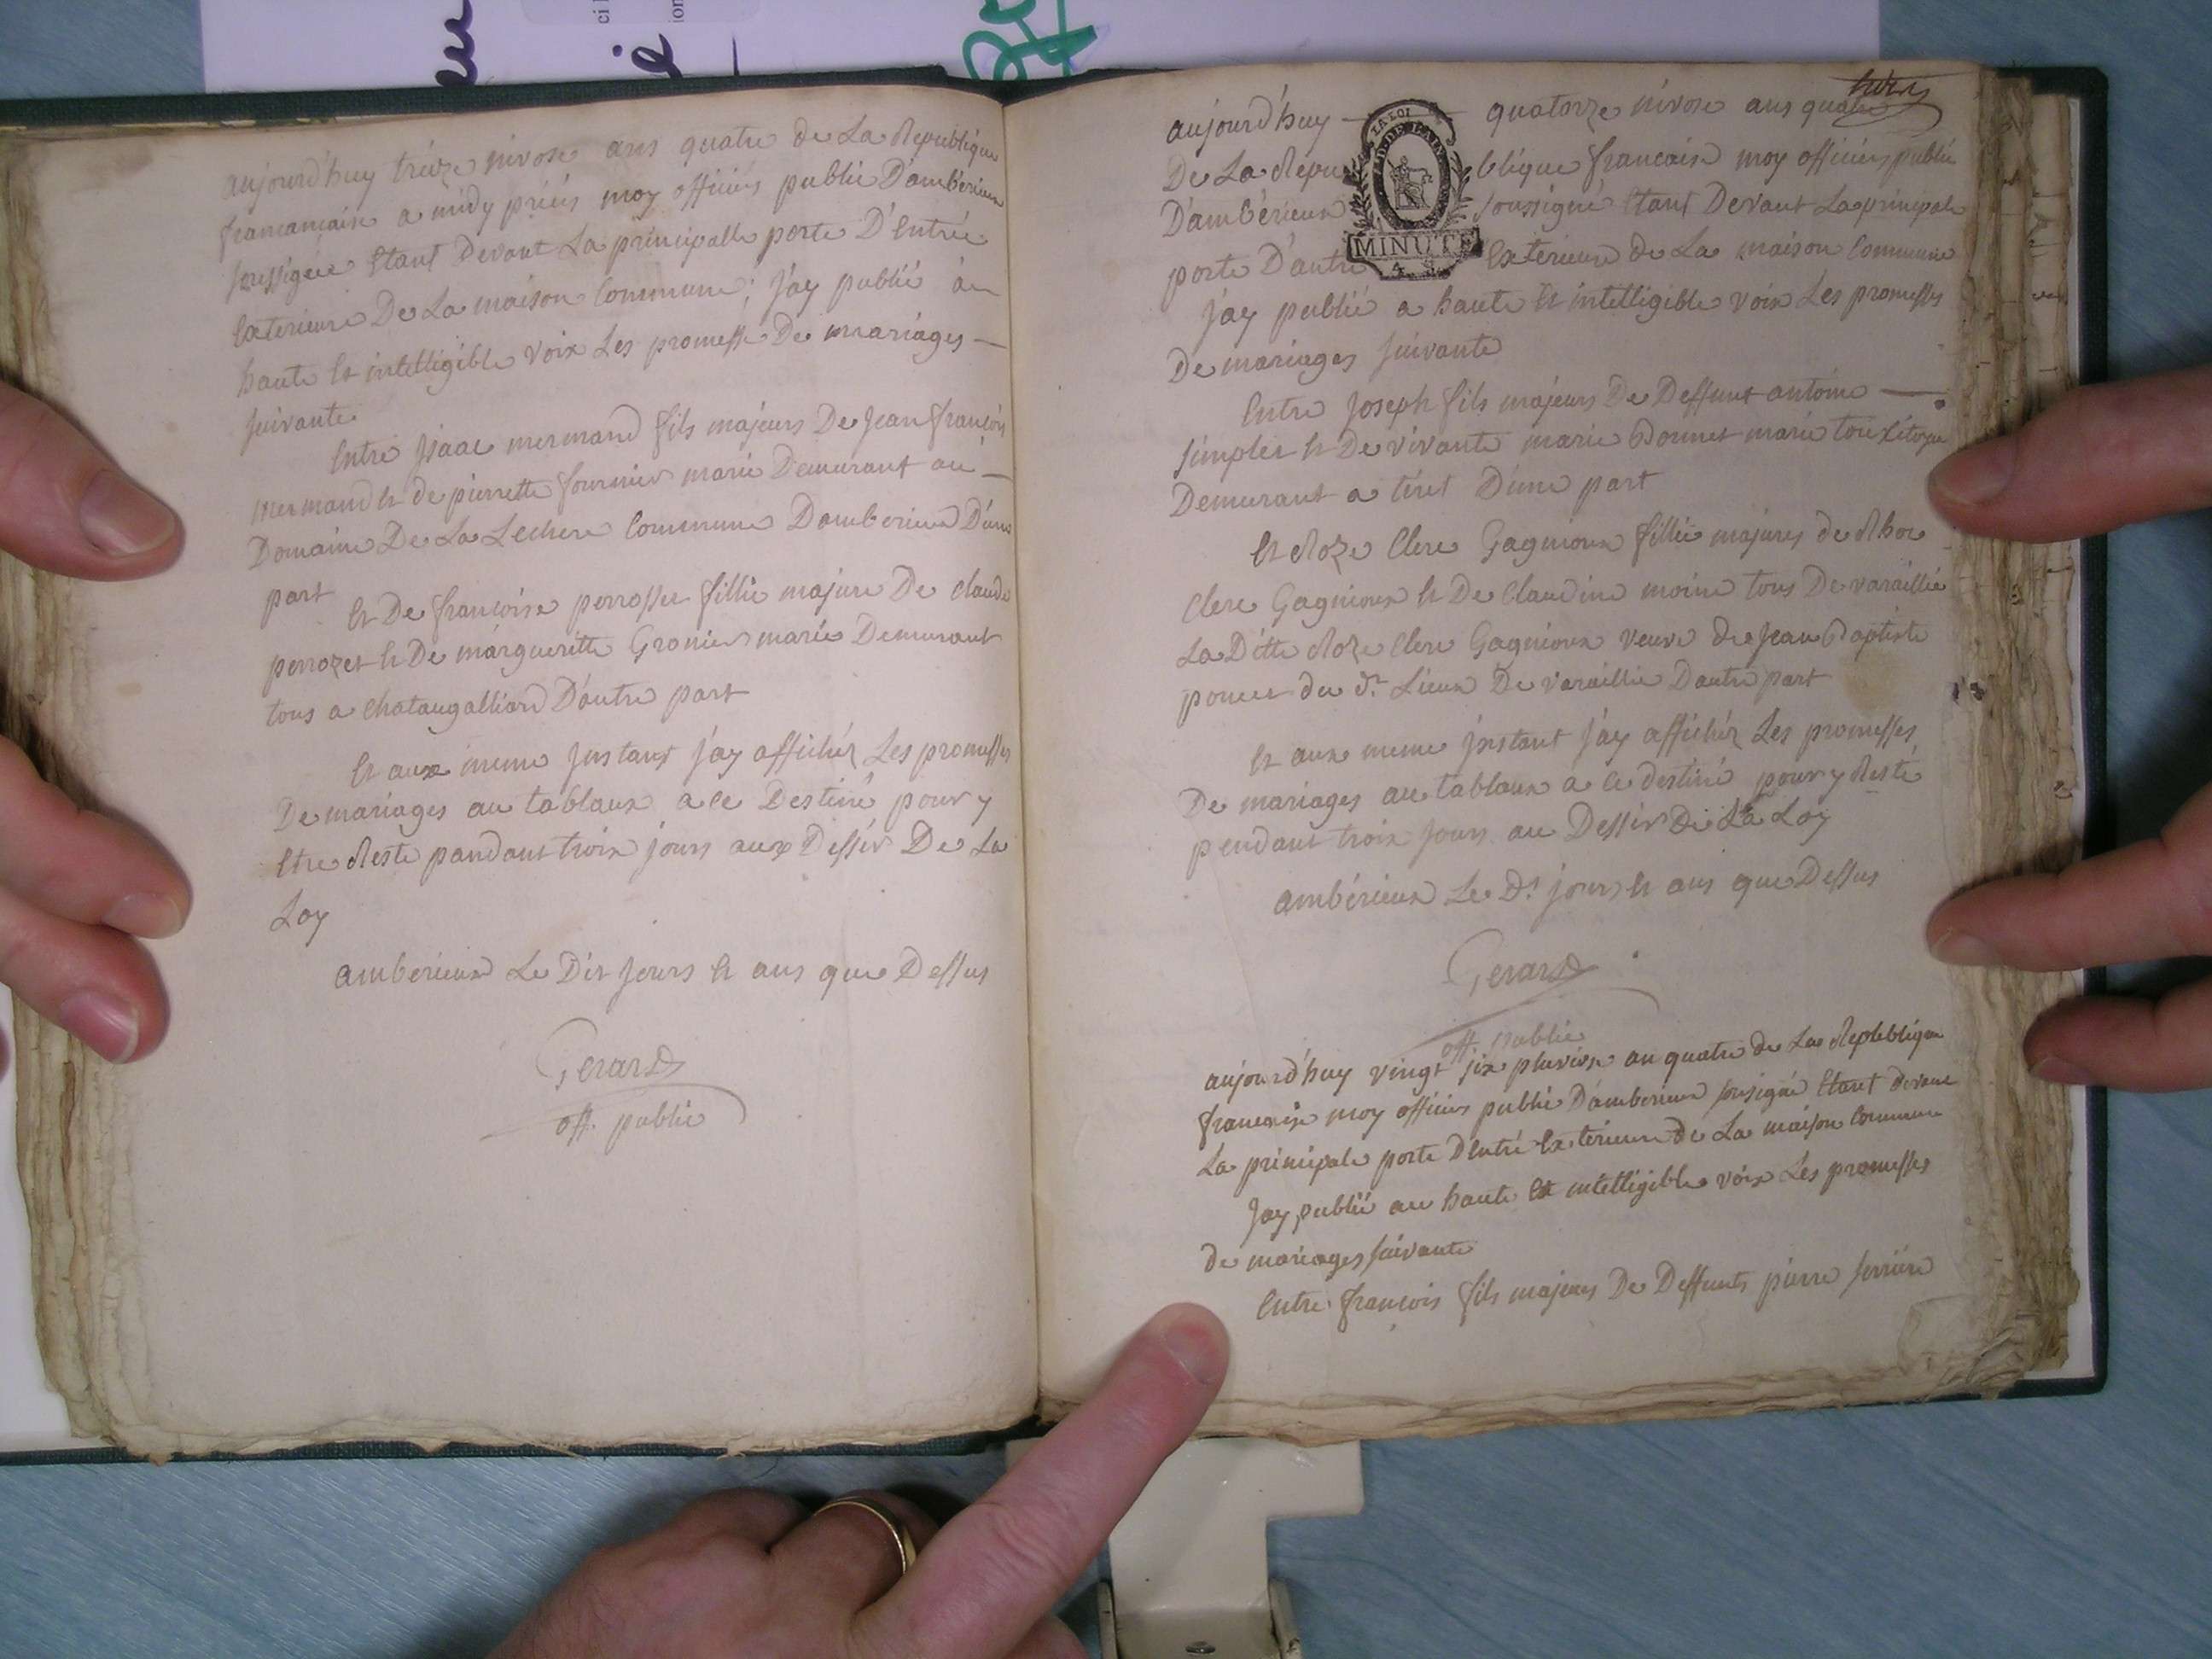 aujourd'huy treize nivose ans quatre de La Republique
francancaise a midy précis moy officiers public D'amberieux
soussigéée Etant Devant La principalle porte D'Entrée
Exterieure De La maison Commune; j'ay publié a
haute Et intelligible voix Les promesse De mariages —
suivante
Entre jsaac mermand fils majeurs De jean françois
mermand Et de pierrette fournier marié Demurant au —
Domaine De La Lechere Commune Damberieux D'une
part
Et De francoise perrosset fillie majure De claude
perrozet Et De margueritte Gronier marié Demurant
tous a chataugalliard D'autre part
Et aux meme jnstant j'ay affichéz Les promesses
De mariages au tablaux a ce Destiné pour y
Etre Resté pandant trois jours aux Dessir De La
Loy
amberieux Le Dit jours Et ans que Dessus
Gerard
off. public
aujourd'huy — quatorze nivose ans quatre
De La Repu blique francaise moy officiers public
D'ambérieux soussigné Etant Devant La principale
porte D'antré Exterieure de La maison Commune
j'ay publié a haute Et intelligible voix Les promesses
De mariages suivante
Entre joseph fils majeurs De Deffunt antoine —
simplet Et De vivante marie Bonnet marié
Demurant a tiret D'une part
Et Roze Clerc Gagnioux fillie majures de
Clerc Gagnioux Et De Claudine moine tous De varaillie
La Ditte Roze Clerc Gagnioux veuve de jean Baptiste
poncet du dt Lieux De varaillie D'autre part
Et aux meme jnstant j'ay affichéz Les promesses
De mariages au tablaux a ce destiné pour y Resté
pendant trois jours au Dessir De La Loy
ambérieux Le Dt jours Et ans que Dessus
Gerard
off. public
aujourd'huy vingt six pluviose an quatre de La Repleblique
francaise moy officiers public D'amberieux sousigné Etant devant
La principale porte D'entré Exterieure De La maison Commune
Jay publié au haute Et intelligible voix Les promesses
de mariages suivante
Entre francois fils majeurs De Deffunts pierre
LA LOI
MINUTE